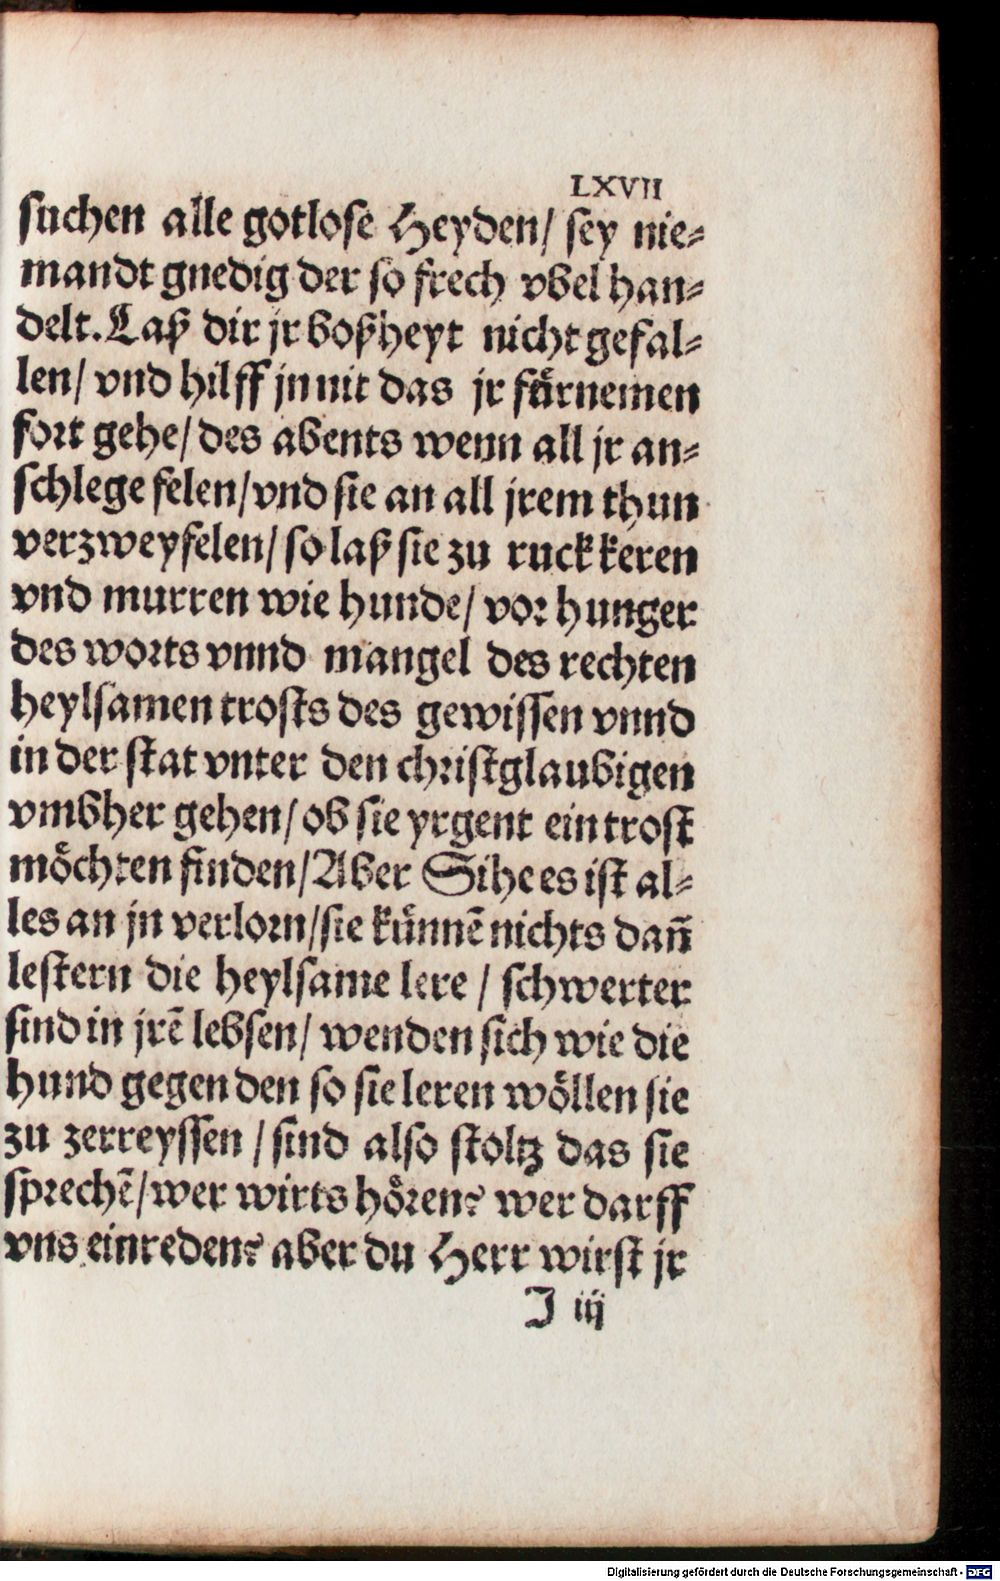 LXVII
suchen alle gotlose Heyden/ sey nie⸗
mandt gnedig der so frech vbel han⸗
delt. Laß dir jr boßheyt nicht gefal⸗
len/ vnd hilff jn nit das jr fürnemen
fort gehe/ des abents wenn all jr an⸗
schlege felen/ vnd sie an all jrem thun
verzweyfelen/ so laß sie zu ruck keren
vnd murren wie hunde/ vor hunger
des worts vnnd mangel des rechten
heylsamen trosts des gewissen vnnd
in der stat vnter den christglaubigen
vmbher gehen/ ob sie yrgent ein trost
möchten finden/ Aber Sihe es ist al⸗
les an jn verlorn/ sie künnē nichts dan̄
lestern die heylsame lere / schwerter
sind in jrē lebsen/ wenden sich wie die
hund gegen den so sie leren wöllen sie
zu zerreyssen / sind also stoltz das sie
sprechē/ wer wirts hören? wer darff
vns einreden? aber du Herr wirst jr
J iij
Digitalisierung gefördert durch die Deutsche Forschungsgemeinschaft - DFG